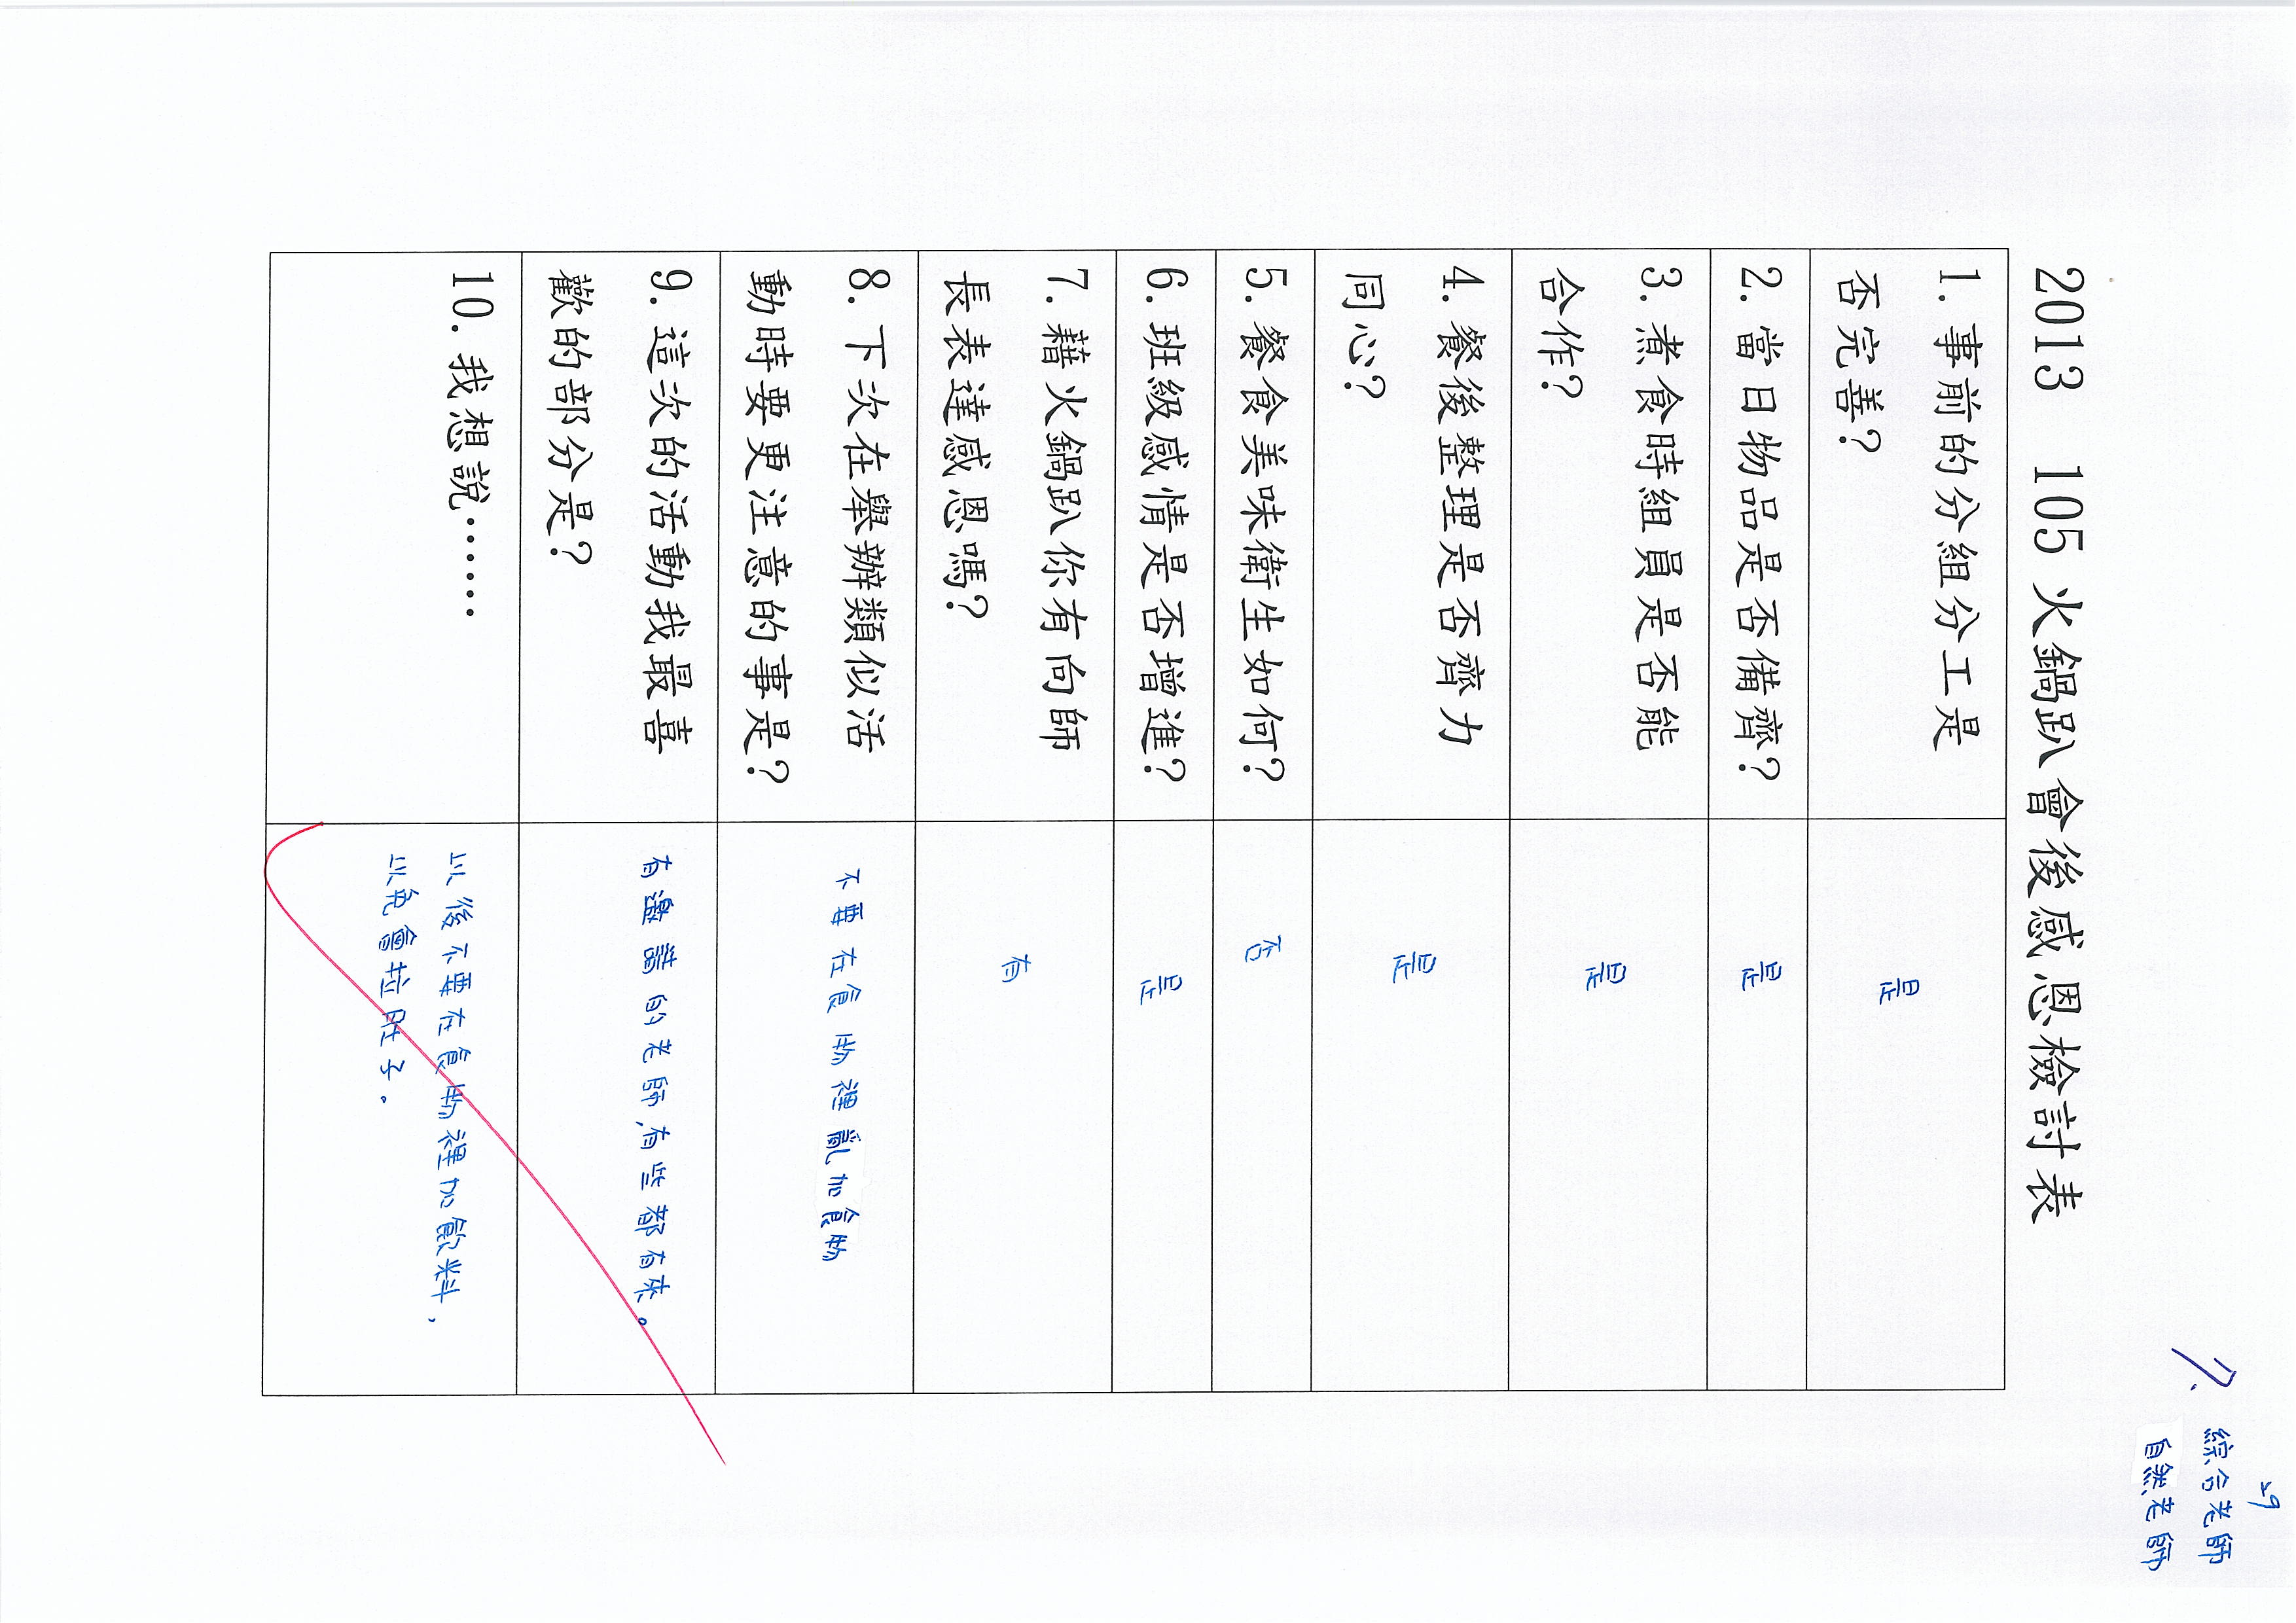 29
7. 綜合老師
自然老師
2013 105火鍋趴會後感恩檢討表
1. 事前的分組分工是
否完善?
是
2. 當日物品是否備齊?
是
3. 煮食時組員是否能
合作?
是
4. 餐後整理是否齊力
同心?
是
5. 餐食美味衛生如何?
否
6. 班級感情是否增進?
是
7. 藉火鍋趴你有向師
長表達感恩嗎?
有
8. 下次在舉辦類似活
動時要更注意的事是?
不要在食物裡亂加食物
9. 這次的活動我最喜
歡的部分是?
有邀請的老師,有些都有來。
10. 我想說……
以後不要在食物裡加飲料,
以免會拉肚子。